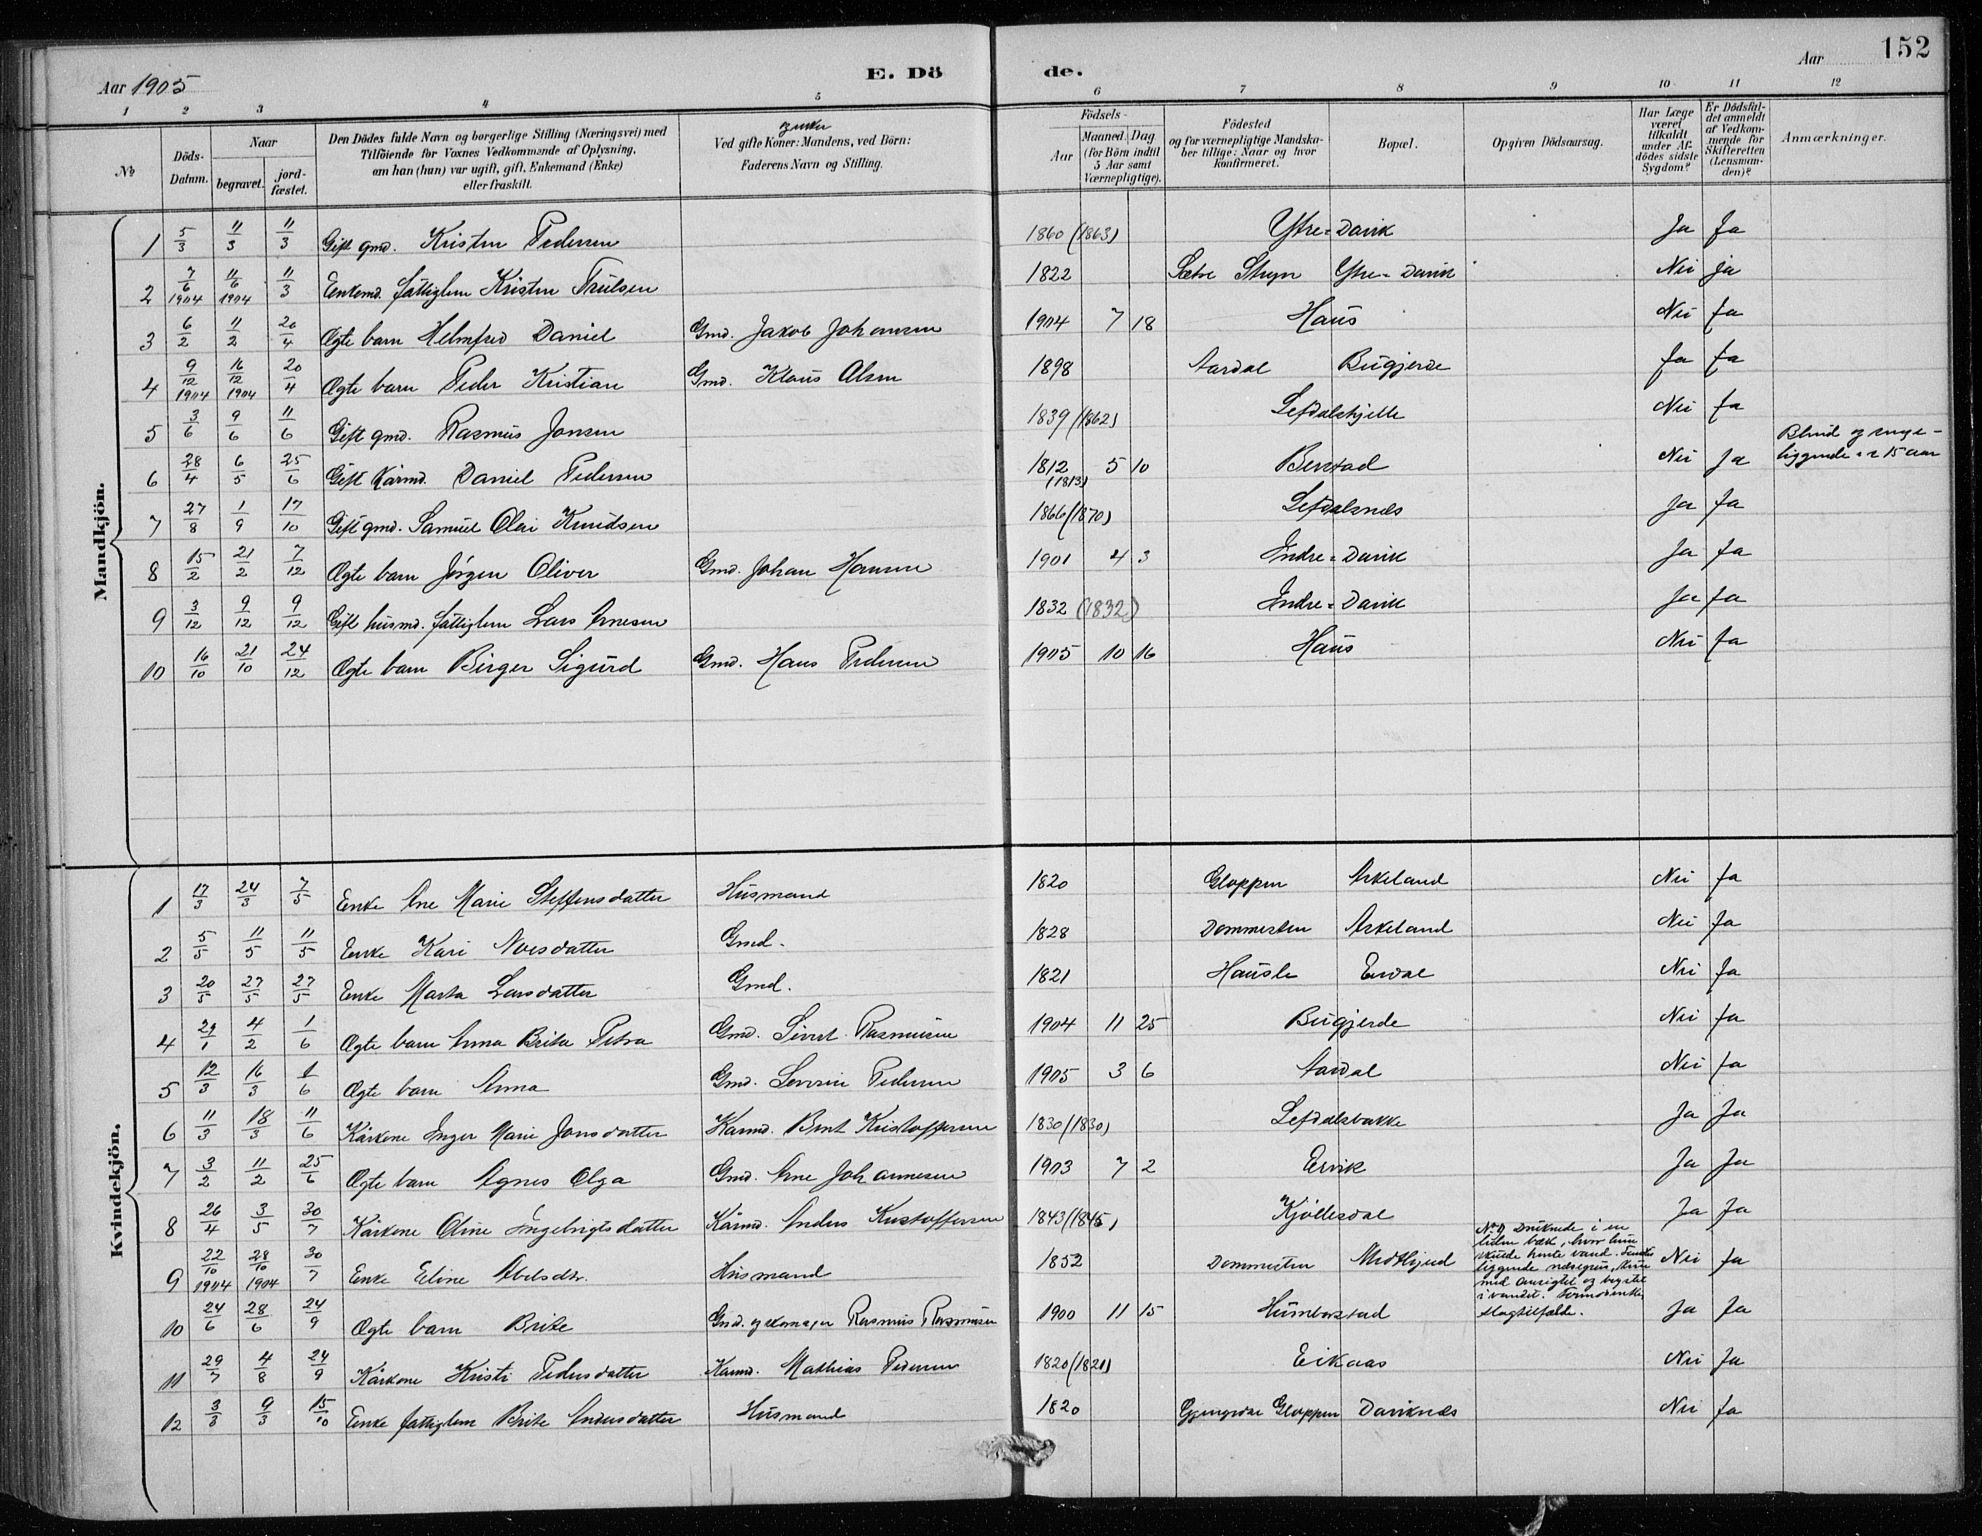 Aar 1905
E. Dö
de.
Aar
152
1 2 3 4 5 6 7 8 9 10 11 12
No
Döds-Datum.
Naar
begravet.
jord-fæstet.
Den Dödes fulde Navn og borgerlige Stilling (Næringsvei) med
Tilföiende for Voxnes Vedkommende af Oplysning,
om han (hun) var ugift, gift, Enkemand (Enke)
eller fraskilt.
og enker
Ved gifte Koner: Mandens, ved Börn:
Faderens Navn og Stilling.
Födsels-
Aar
Maaned. Dag
(for Börn indtil
5 Aar samt
Værnepligtige).
Födested
og for værnepligtige Mandska-
ber tillige: Naar og hvor
konfirmeret.
Bopæl.
Opgiven Dödsaarsag.
Har Læge
været
tilkaldt
under Af-
dödes sidste
Sygdom?
Er Dödsfal-
det anmeldt
af Vedkom-
mende for
Skifteretten
(Lensman-
den)?
Anmærkninger.
Mandkjön.
1 5/3 11/3 11/3 Gift gmd. Kristen Pedersen 1860 (1863) Ytre-Davik Ja Ja
2 7/6 1904 11/6 1904 11/3 Enkemd. fattiglem Kristen Trulsen 1822 Sætre Stryn Ytre-Davik Nei ja
3 6/2 11/2 20/4 Ægte barn Helmfred Daniel Gmd. Jakob Johansen 1904 7 18 Haus Nei Ja
4 9/12 1904 16/12 1904 20/4 Ægte barn Peder Kristian Gmd. Klaus Olsen 1898 Aardal Bugjerde Ja Ja
5 3/6 9/6 11/6 Gift gmd. Rasmus Jonsen 1839 (1862) Lefdalskjelle Nei Ja
6 28/4 6/5 25/6 Gift Kårmd. Daniel Pedersen 1812 (1813) 5 10 Berstad Nei Ja Blind og senge-
liggende i 15 aar
7 27/8 1/9 17/10 Gift gmd. Samuel Olai Knudsen 1866 (1870) Lefdalsnes Ja Ja
8 15/2 21/2 7/12 Ægte barn Jørgen Oliver Gmd. Johan Hansen 1901 4 3 Indre-Davik Ja Ja
9 3/12 9/12 9/12 Gift husmd. fattiglem Lars Arnesen 1832 (1832) Indre-Davik Ja Ja
10 16/10 21/10 24/12 Ægte barn Birger Sigurd Gmd. Hans Pedersen 1905 10 16 Haus Nei Ja
Kvindekjön.
1 17/3 24/3 7/5 Enke Ane Marie Steffensdatter Husmand 1820 Gloppen Askeland Nei Ja
2 5/5 11/5 11/5 Enke Kari Noesdatter Gmd. 1828 Dommesten Askeland Nei Ja
3 20/5 27/5 27/5 Enke Marta Larsdatter Gmd. 1821 Hausle Endal Nei Ja
4 29/1 4/2 1/6 Ægte barn Anna Brita Petra Gmd. Sivert Rasmussen 1904 11 25 Bugjerde Nei Ja
5 12/3 16/3 1/6 Ægte barn Anna Gmd. Severin Pedersen 1905 3 6 Aardal Nei Ja
6 11/3 18/3 11/6 Kårkone Inger Marie Jonsdatter Karmd. Bent Kristoffersen 1830 (1830) Lefdalsbakke Ja Ja
7 3/2 11/2 25/6 Ægte barn Agnes Olga Gmd. Arne Johannesen 1903 7 2 Ervik Ja Ja
8 26/4 3/5 30/7 Kårkone Oline Ingebrigtsdatter Kårmd. Anders Kristoffersen 1843 (1845) Kjöllesdal Ja Ja
9 22/10 1904 28/10 1904 30/7 Enke Eline Abelsdtr. Husmand 1852 Dommesten Midthjell No 9 Druknede i en
liden bæk, hvor hun
skulde hente vand. Fandtes
liggende næsegrus, kun
med ansigtet og brystet
i vandet. Formodentlig
slagtilfælde. Nei Ja
10 24/6 28/6 24/9 Ægte barn Brite Gmd. og skomager Rasmus Rasmussen 1900 11 15 Humborstad Ja Ja
11 29/7 4/8 24/9 Kårkone Kristi Pedersdatter Karmd. Mathias Pedersen 1820 (1821) Eikaas Nei Ja
12 3/3 9/3 15/10 Enke fattiglem Brite Andersdatter Husmand 1820 Gjengedal Gloppen Daviknes Nei Ja